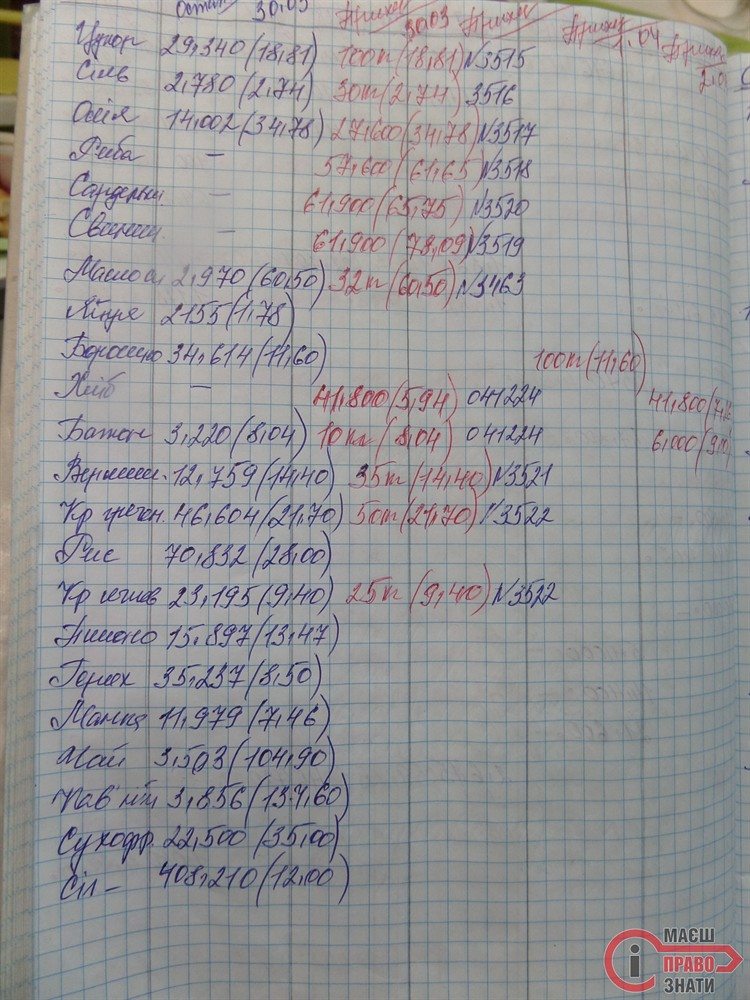 Остат 30.03 Приход 30.03 Приход Приход 1.04 Приход 2.0
Цукор 29,340 (18,81) 100кг (18,81) №3515
Сіль 2,780 (2,74) 30кг (2,74) 3516
Олія 14,002 (34,78) 27,600 (34,78) №3517
Риба – 57,600 (61,65) №3518
– 61,900 (65,75) №3520
Свинина – 61,900 (78,09) №3519
Масло 2,970 (60,50) 32кг (60,50) №3463
Яйця 2155 (1,78)
Борошно 34,614 (11,60) 100кг (11,60)
Хліб – 41,800 (5,94) 041224 41,800 (7,
Батон 3,220 (8,04) 10кг (8,04) 041224 6,000 (9,
Вермиш. 12,759 (14,40) 35кг (14,40) №3521
Кр гречан. 46,604 (21,70) 50кг (21,70) №3522
Рис 70,832 (28,00)
Кр 23,195 (9,40) 25кг (9,40) №3522
Пшоно 15,897 (13,47)
Горох 35,237 (8,50)
Манка 11,979 (7,46)
Чай 3,503 (104,90)
Кав. нап 3,856 (137,60)
Сухофр. 22,500 (35,00)
408,210 (12,00)
МАЄШ
ПРАВО
ЗНАТИ